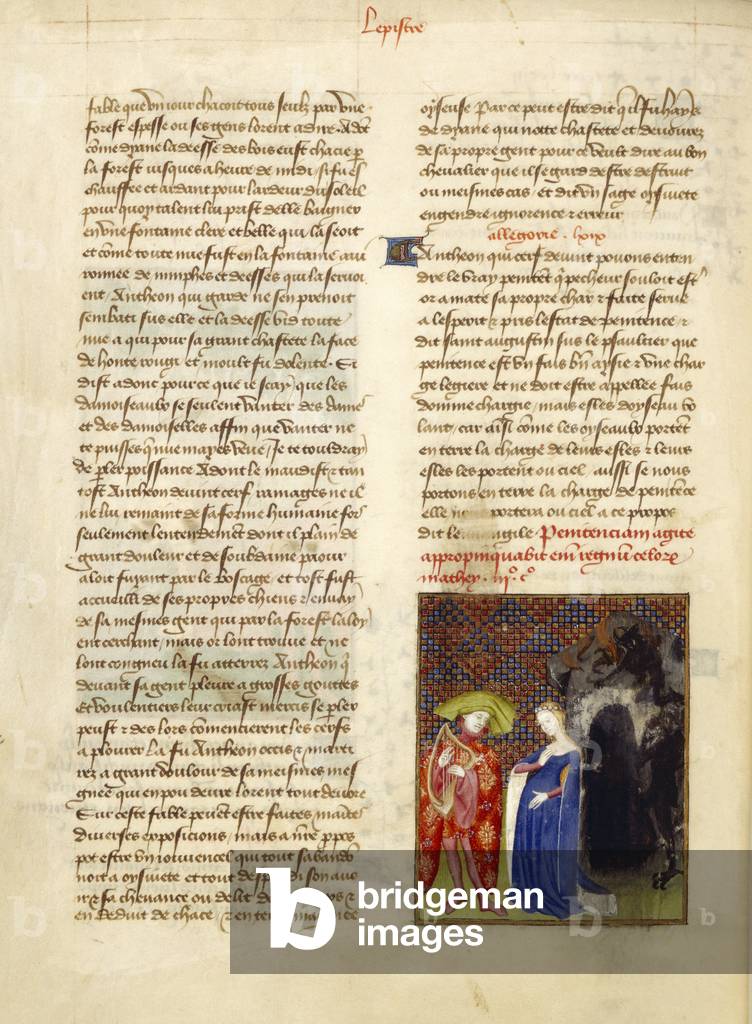 Lepistre
fable que un iour chacoit tous seulz par une
forest espesse ou ses gens lorent adire Adont
come dyane la deesse des bois eust chacie par
la forest iusques a heure de midi si fu es
chauffee et ardant pour lardeur du soleil
pour quoy talent lui prist delle baigner
en une fontaine clere et belle qui la seoit
et come toute nue fust en la fontaine avi
ronnee de nimphes et deesses qui la servoi
ent Antheon qui garde ne sen prenoit
sembati sus elle et la deesse vid toute
nue a qui pour sa grant chastete la face
de honte rougi et moult fu dolente Si
dist adonc pour ce que ie scay que les
damoiseaulx se seulent vanter des dames
et des damoiselles affin que vanter ne
te puisses que nue mayes veue Je te touldray
de parler poissance Adont le maudist et tan
tost Antheon devint cerf ramages ne il
ne lui remaint de sa forme humaine fors
seulement lentendement dont il plain de
grant douleur et de soubdaine paour
aloit fuyant par le boscage et tost fust
accueilli de ses propres chiens et envay
de sa mesmes gent qui par la forest laloy
ent cerchant mais or lont trouve et ne
lont congneu la fu atterrez Antheon qui
devant sa gent pleure a grosses gouttes
Et voulentiers leur criast mercis se parler
peust et des lors comencierent les cerfs
a plourer La fu Antheon occis et marti
rez a grant doulour de sa meismes mes
gnee qui en pou deure lorent tout devore
Sur ceste fable peuent estre faites maintes
diverses exposicions mais a nostre propos
peut estre un iouvencel qui tout sabandon
noit a oysivete et tout son avoir
et sa chevance ou delit de
en deduit de chace et en
oyseuse Par ce peut estre dit quil fu hays
de dyane qui note chastete et devourez
de sa propre gent pour ce veult dire au bon
chevalier que il se garde destre destruit
ou meismes cas et dit un sage oysivete
engendre ignorence et erreur
allegorie lxix
Antheon qui cerf devint povons enten
dre le vray penitent qui pecheur souloit estre
or a mate sa propre char et faite serve
a lesperit et pris lestat de penitence et
dit saint augustin sus le psaultier que
penitence est un fais bien aysie et une char
ge legiere et ne doit estre appellee fais
domme chargie mais esles doyseau vo
lant car aisi come les oyseaulx portent
en terre la charge de leurs esles et leurs
esles les portent ou ciel aussi se nous
portons en terre la charge de penitence
elle portera ou ciel a ce propos
dit Penitenciam agite
appropinquabit enim regnum celorum
mathey iij c
b bridgeman
images